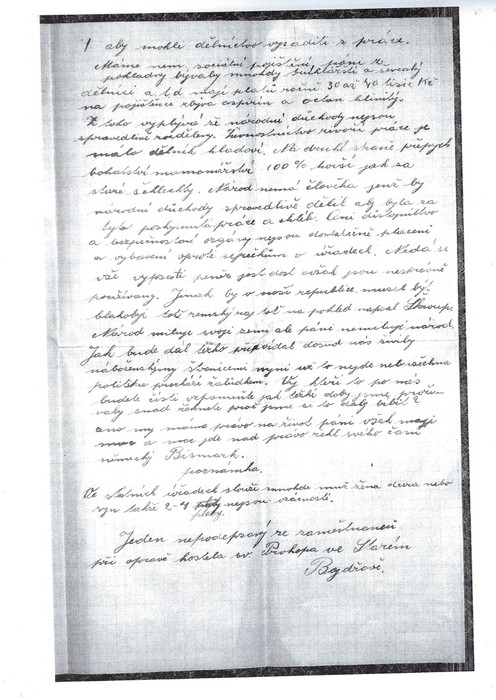 ! aby mohli dělnictvo vysaditi z práce.
Máme nem. sociální pojištění páni z
pokladny bývaly mnohdy truhlářští a ševcovský
dělníci a t.d. mají platů roční 30 až 40 tisíc Kč
na pojištěnce zbývá aspirin a octan hlinitý.
Z toho vyplývá že národní důchody nejsou
spravedlivě rozděleny. Živnostnictvo živoří práce je
málo dělník hladoví. Na druhé straně přepych
bohatství mamonářství 100% horší jak za
staré šlechty. Národ nemá člověka jenž by
národní důchody spravedlivě dělil aby byla za
tyto poskytnuta práce a chléb. Ani důstojnictvo
a bezpečnostní orgány nejsou dostatečně placeni
a vybaveni oproti úředníkům v úřadech. Nedá se
vše vypsati peněz jest dost avšak jsou nesprávně
používány. Jinak by v naší republice musel být
blahobyt totiž zemský ráj to na pohled napsal
Národ miluje svoji zemi ale páni nemilují národ.
Jak bude dál těžko předvídat dosud nás živily
náboženstvím stranictvím nyní už to nejde neb všechna
politika prochází žaludkem. Vy kteří to po nás
budete čísti vzpomeňte jak těžké doby jsme prožívaly
snad řeknete proč jsme si to daly líbit?
ano my máme právo na život páni však mají
moc a moc jde nad právo řekl svého času
německý Bismark.
poznámka.
Ve státních úřadech slouží mnohde muž žena dcera nebo
syn takže 2-4 platy nejsou vzácností.
Jeden nepodepsaný ze zaměstnanců
při opravě kostela sv. Prokopa ve Starém
Bydžově.